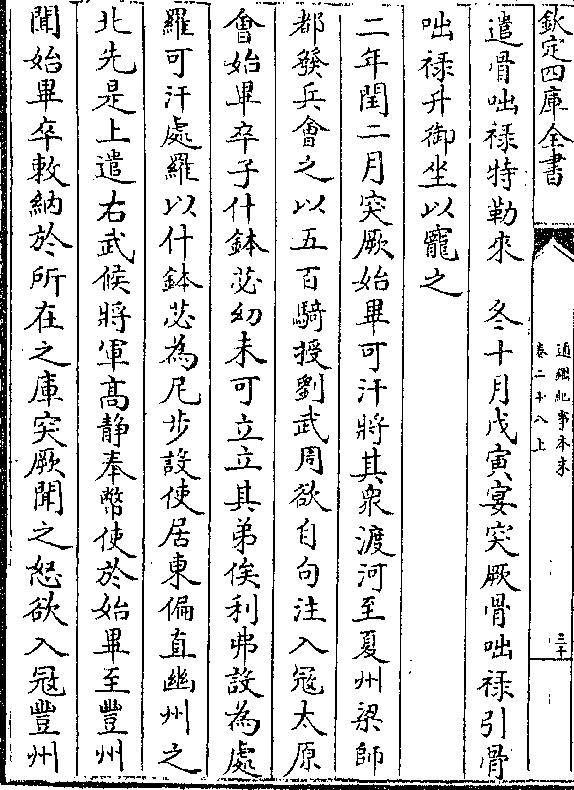 欽定四庫全書
通鑑紀事本末
卷二十八上
三十
遣骨咄禄特勒來　冬十月戊寅宴突厥骨咄禄引骨
咄禄升御坐以寵之
二年閏二月突厥始畢可汗將其衆渡河至夏州梁師
都發兵會之以五百騎授劉武周欲自句注入寇太原
會始畢卒子什鉢苾幼未可立立其弟俟利弗設為處
羅可汗處羅以什鉢苾為尼步設使居東偏直幽州之
北先是上遣右武候將軍髙静奉幣使於始畢至豐州
聞始畢卒敕納於所在之庫突厥聞之怒欲入寇豐州